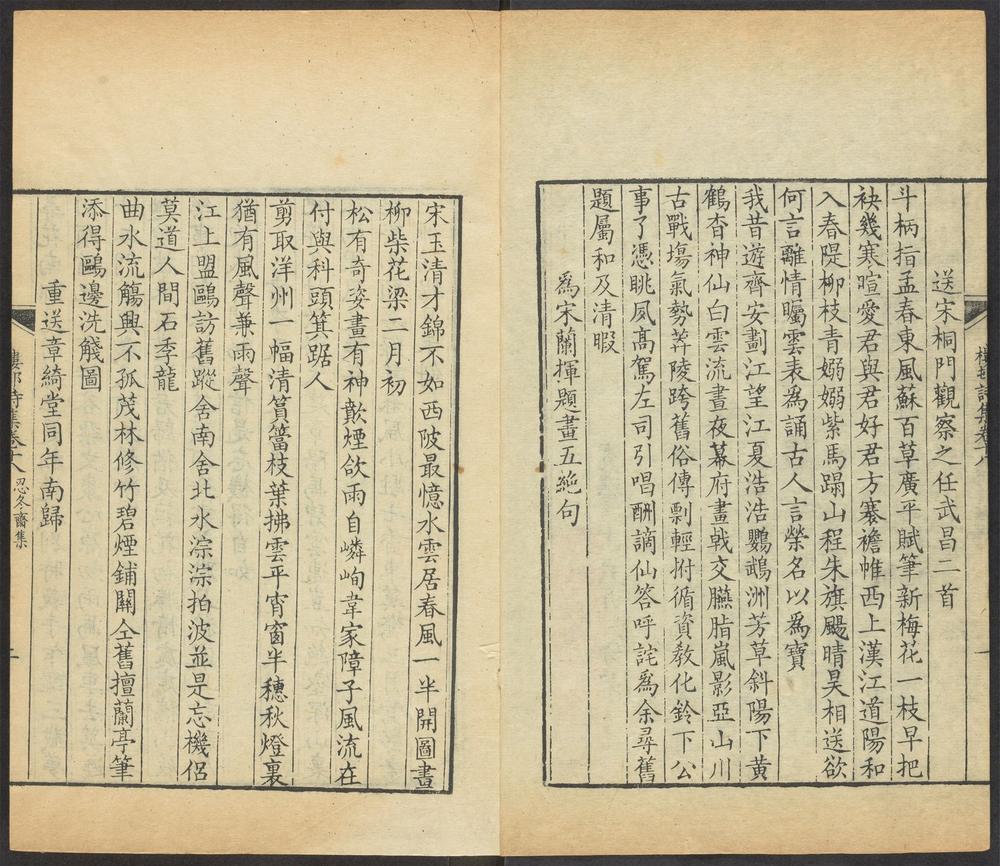 送宋桐門觀察之任武昌二首
斗柄指孟春東風蘇百草廣平賦筆新梅花一枝早把
袂幾寒暄愛君與君好君方褰襜帷西上漢江道陽和
入春隄柳枝青嫋嫋紫馬蹋山程朱旗颺晴昊相送欲
何言離情矚雲表為誦古人言榮名以為寶
我昔遊齊安劃江望江夏浩浩鸚鵡洲芳草斜陽下黃
鶴杳神仙白雲流晝夜幕府畫戟交臙脂嵐影亞山川
古戰塲氣勢莽陵跨舊俗傳剽輕拊循資敎化鈴下公
事了憑眺夙髙駕左司引唱酬謫仙答呼詫爲余尋舊
題屬和及清暇
爲宋蘭揮題畫五絶句
宋玉清才錦不如西陂最憶水雲居春風一半開圖畫
柳柴花梁二月初
松有奇姿畫有神歕煙欲雨自嶙峋韋家障子風流在
付與科頭箕踞人
剪取洋州一幅清篔簹枝葉拂雲平宵窗半穗秋燈裏
猶有風聲兼雨聲
江上盟鷗訪舊蹤舍南舍北水淙淙拍波並是忘機侶
莫道人間石季龍
曲水流觴興不孤茂林修竹碧煙鋪關仝舊擅蘭亭筆
添得鷗邊洗觴圖
重送章綺堂同年南歸
樓邨詩集卷十八 忍冬齋集
二